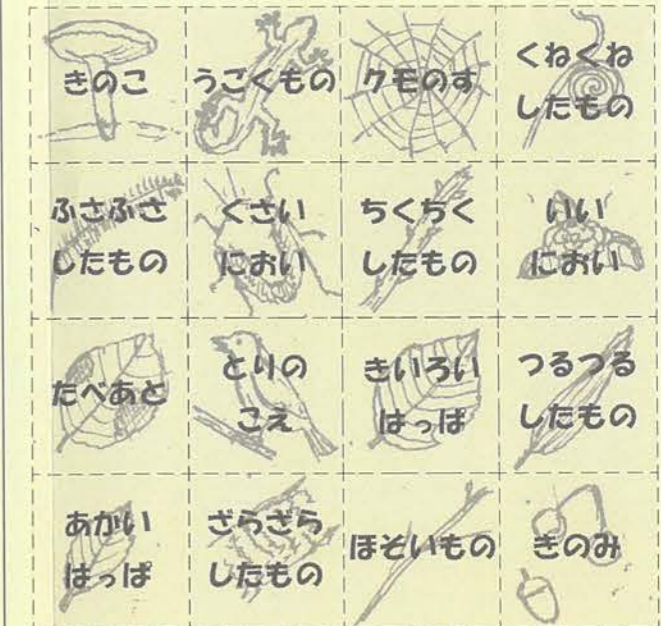 きのこ
うごくもの
クモのす
くねくね
したもの
ふさふさ
したもの
くさい
におい
ちくちく
したもの
いい
におい
たべあと
とりの
こえ
きいろい
はっぱ
つるつる
したもの
あかい
はっぱ
ざらざら
したもの
ほそいもの
きのみ